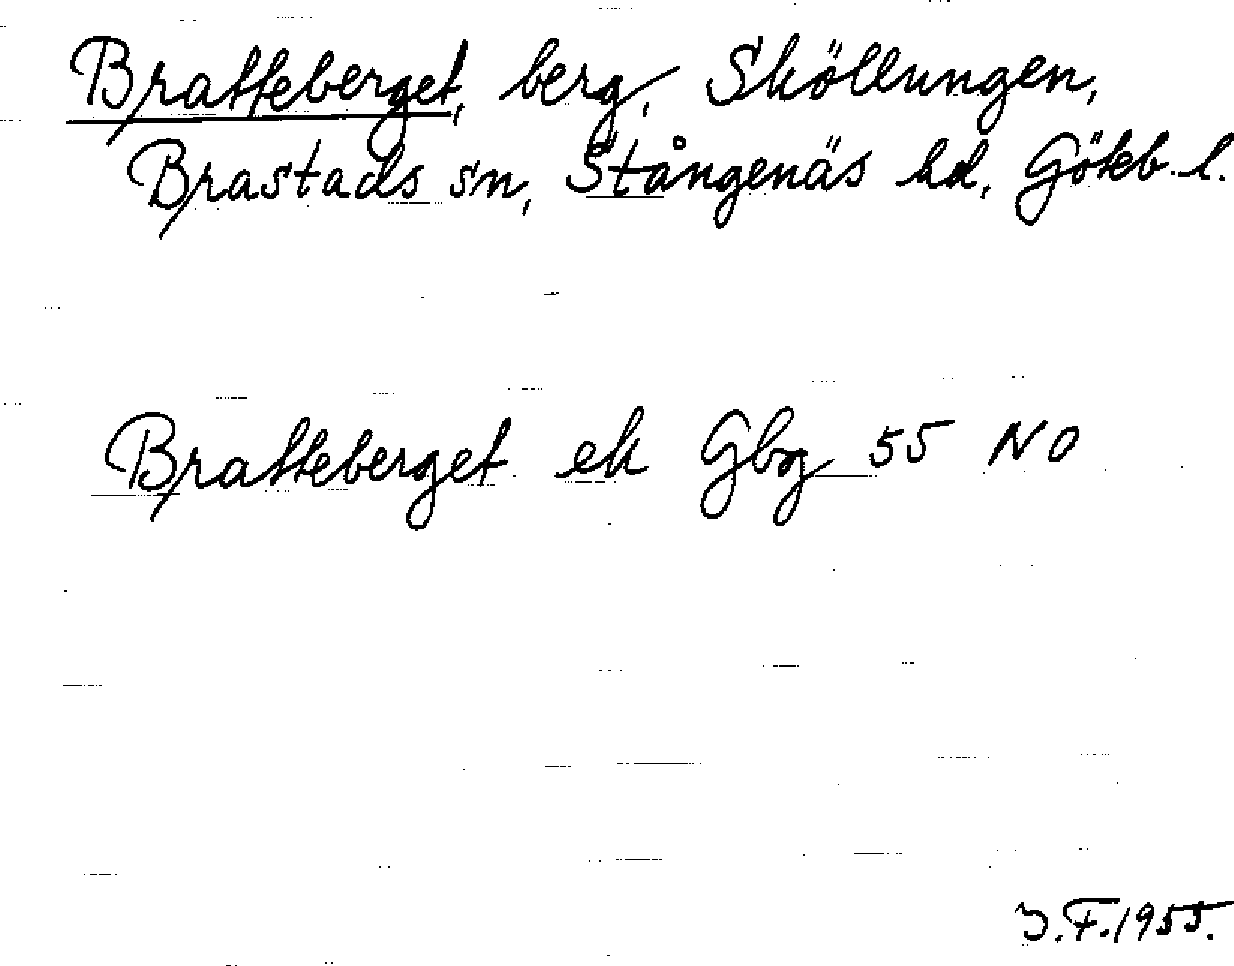 Bratteberget, berg, Sköllungen,
Brastads sn, Stångenäs hd, Götéb. l.
Bratteberget ek Gbg 55 NO
J.F. 1955.